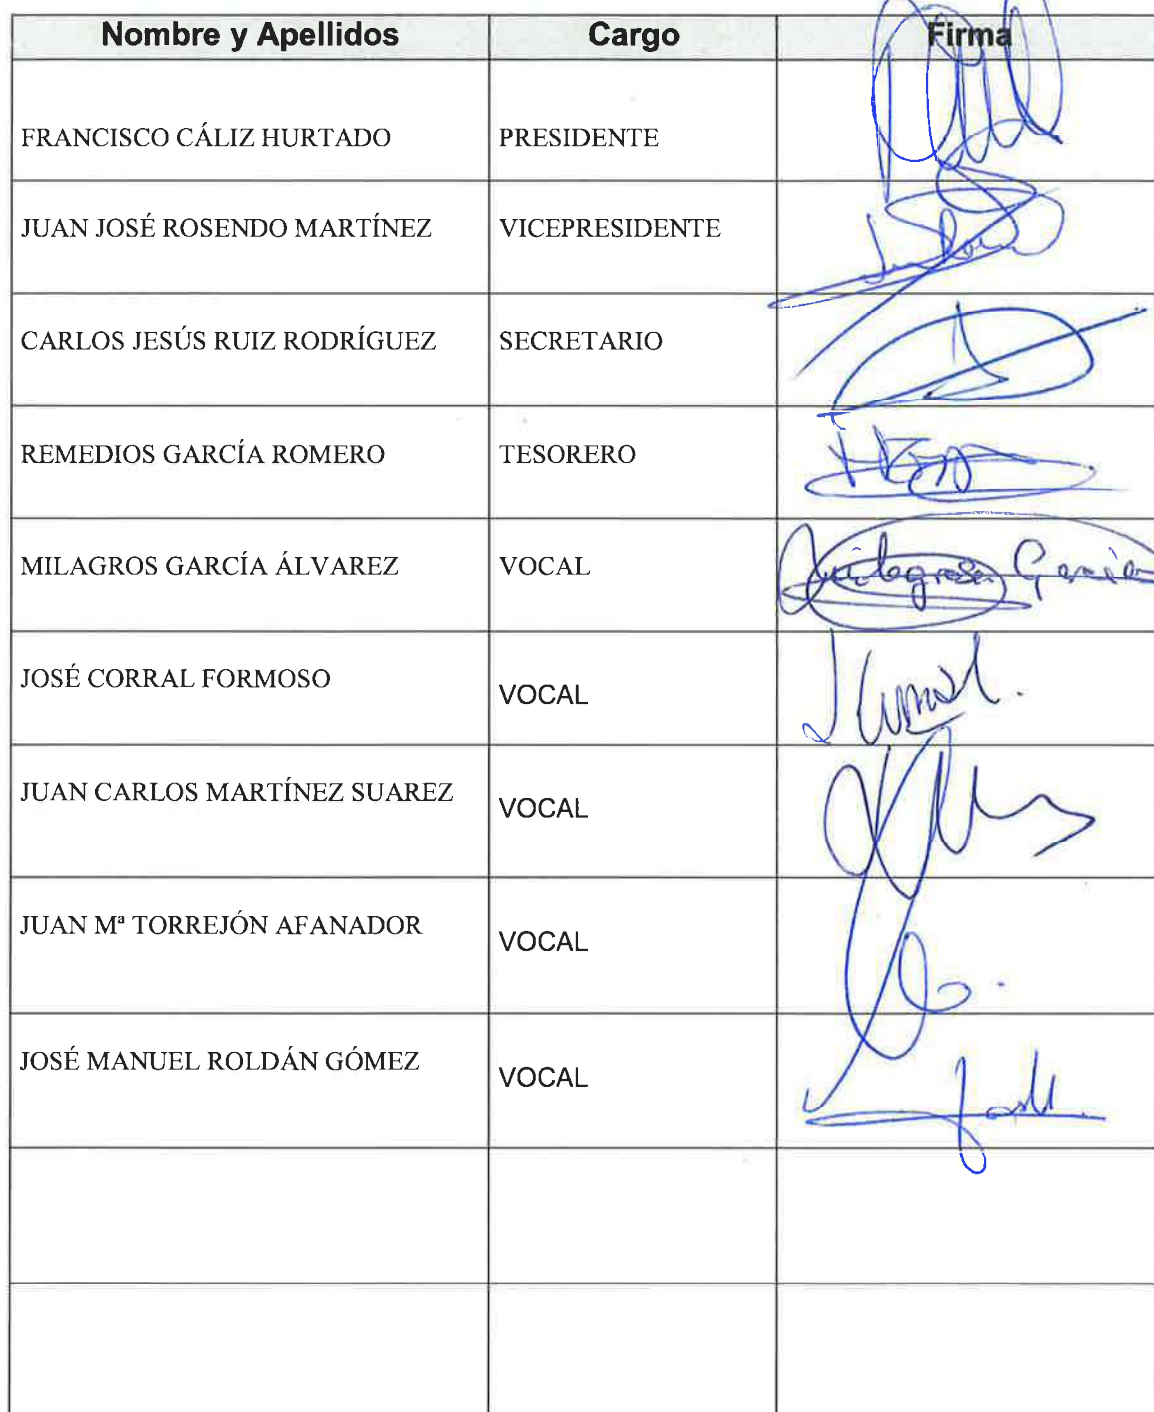 Nombre y Apellidos Cargo Firma
FRANCISCO CÁLIZ HURTADO PRESIDENTE
JUAN JOSÉ ROSENDO MARTÍNEZ VICEPRESIDENTE
CARLOS JESÚS RUIZ RODRÍGUEZ SECRETARIO
REMEDIOS GARCÍA ROMERO TESORERO
MILAGROS GARCÍA ÁLVAREZ VOCAL Milagros García
JOSÉ CORRAL FORMOSO VOCAL
JUAN CARLOS MARTÍNEZ SUAREZ VOCAL
JUAN Mª TORREJÓN AFANADOR VOCAL
JOSÉ MANUEL ROLDÁN GÓMEZ VOCAL